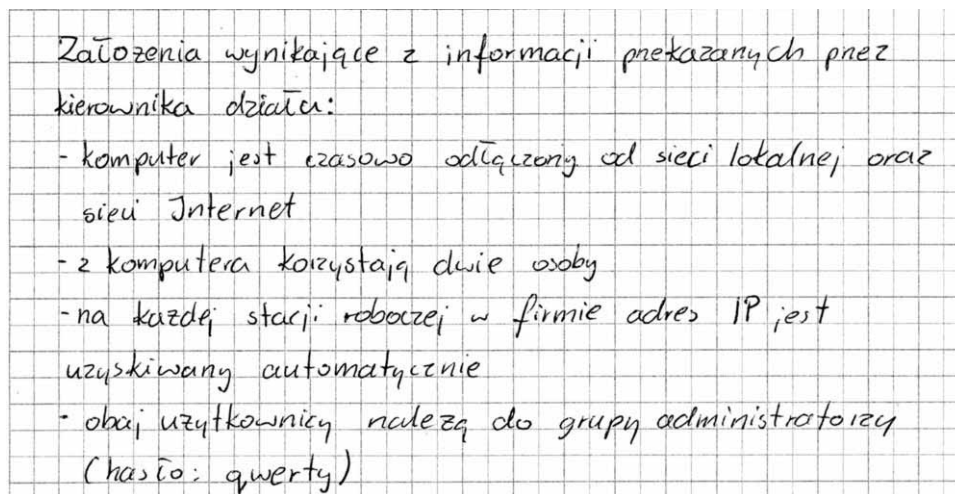 Założenia wynikające z informacji przekazanych przez
kierownika działu:
- komputer jest czasowo odłączony od sieci lokalnej oraz
sieci Internet
- z komputera korzystają dwie osoby
- na każdej stacji roboczej w firmie adres IP jest
uzyskiwany automatycznie
- obaj użytkownicy należą do grupy administratorzy
(hasło: qwerty)